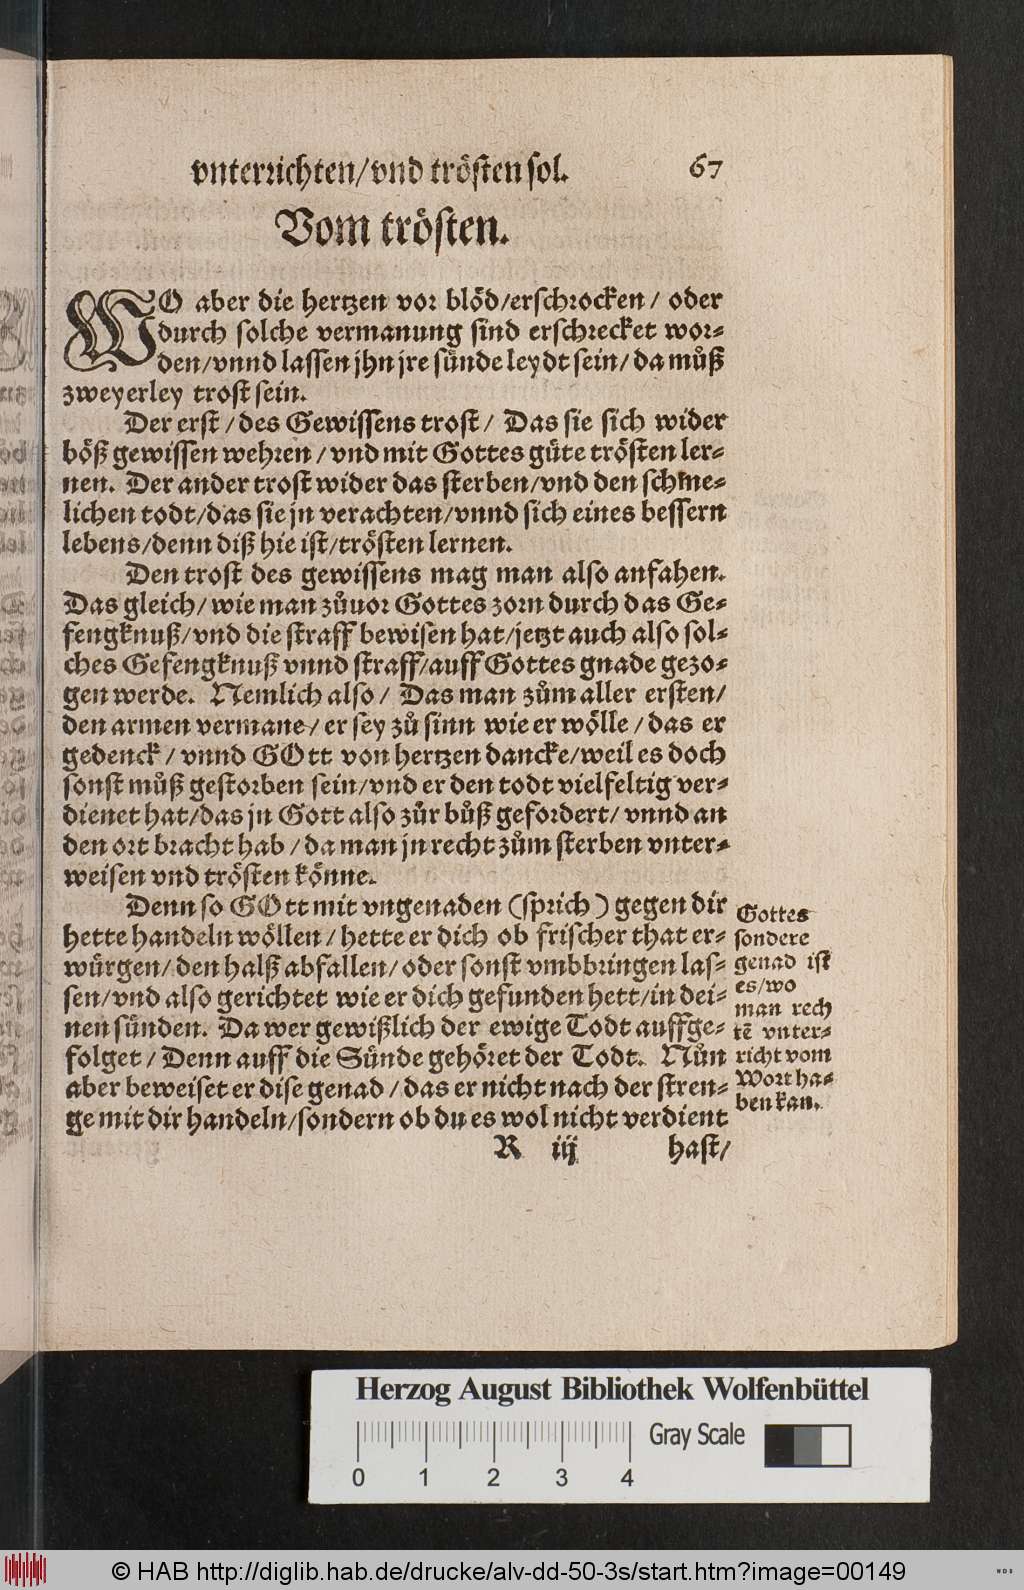 vnterrichten/vnd trösten sol. 67
Vom trösten.
WO aber die hertzen vor blöd/erschrocken/ oder
durch solche vermanung sind erschrecket wor-
den/vnnd lassen jhn jre sünde leydt sein/ da můß
zweyerley trost sein.
Der erst/des Gewissens trost/ Das sie sich wider
böß gewissen wehren/vnd mit Gottes güte trösten ler-
nen. Der ander trost wider das sterben/vnd den schme-
lichen todt/das sie jn verachten/vnnd sich eines bessern
lebens/denn diß hie ist/trösten lernen.
Den trost des gewissens mag man also anfahen.
Das gleich/wie man zůuor Gottes zorn durch das Ge-
fengknuß/vnd die straff bewisen hat/jetzt auch also sol-
ches Gefengknuß vnnd straff/auff Gottes gnade gezo-
gen werde. Nemlich also/ Das man zům aller ersten/
den armen vermane/ er sey zů sinn wie er wölle/das er
gedenck/ vnnd GOtt von hertzen dancke/weil es doch
sonst můß gestorben sein/vnd er den todt vielfeltig ver-
dienet hat/das jn Gott also zůr bůß gefordert/ vnnd an
den ort bracht hab/da man jn recht zům sterben vnter-
weisen vnd trösten könne.
Denn so GOtt mit vngenaden (sprich) gegen dir
hette handeln wöllen/hette er dich ob frischer that er-
würgen/den halß abfallen/oder sonst vmbbringen las-
sen/vnd also gerichtet wie er dich gefunden hett/in dei-
nen sünden. Da wer gewißlich der ewige Todt auffge-
folget/Denn auff die Sünde gehöret der Todt. Nůn
aber beweiset er dise genad/das er nicht nach der stren-
ge mit dir handeln/sondern ob du es wol nicht verdient
R iij hast/
Gottes
sondere
genad ist
es/wo
man rech
tē vnter-
richt vom
Wort ha-
ben kan.
Herzog August Bibliothek Wolfenbüttel
Gray Scale
0 1 2 3 4
© HAB http://diglib.hab.de/drucke/alv-dd-50-3s/start.htm?image=00149